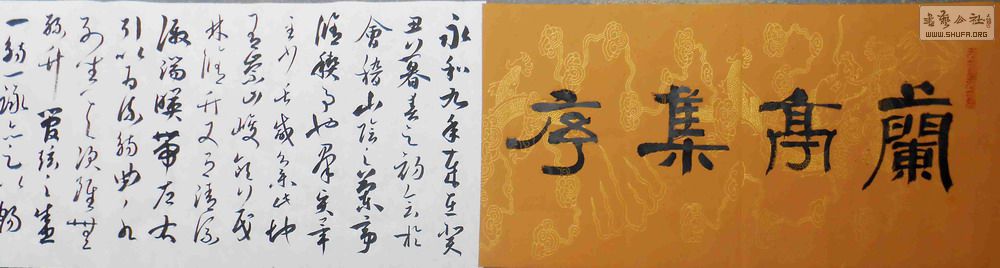 蘭亭集序
永和九年歲在癸
丑暮春之初會於
會稽山陰之蘭亭
脩禊事也羣賢畢
至少長咸集此地
有崇山峻領茂
林脩竹又有清流
激湍暎帶左右
引以為流觴曲水
列坐其次雖無
絲竹管弦之盛
一觴一詠亦足以暢
书艺公社
WWW.SHUFA.ORG